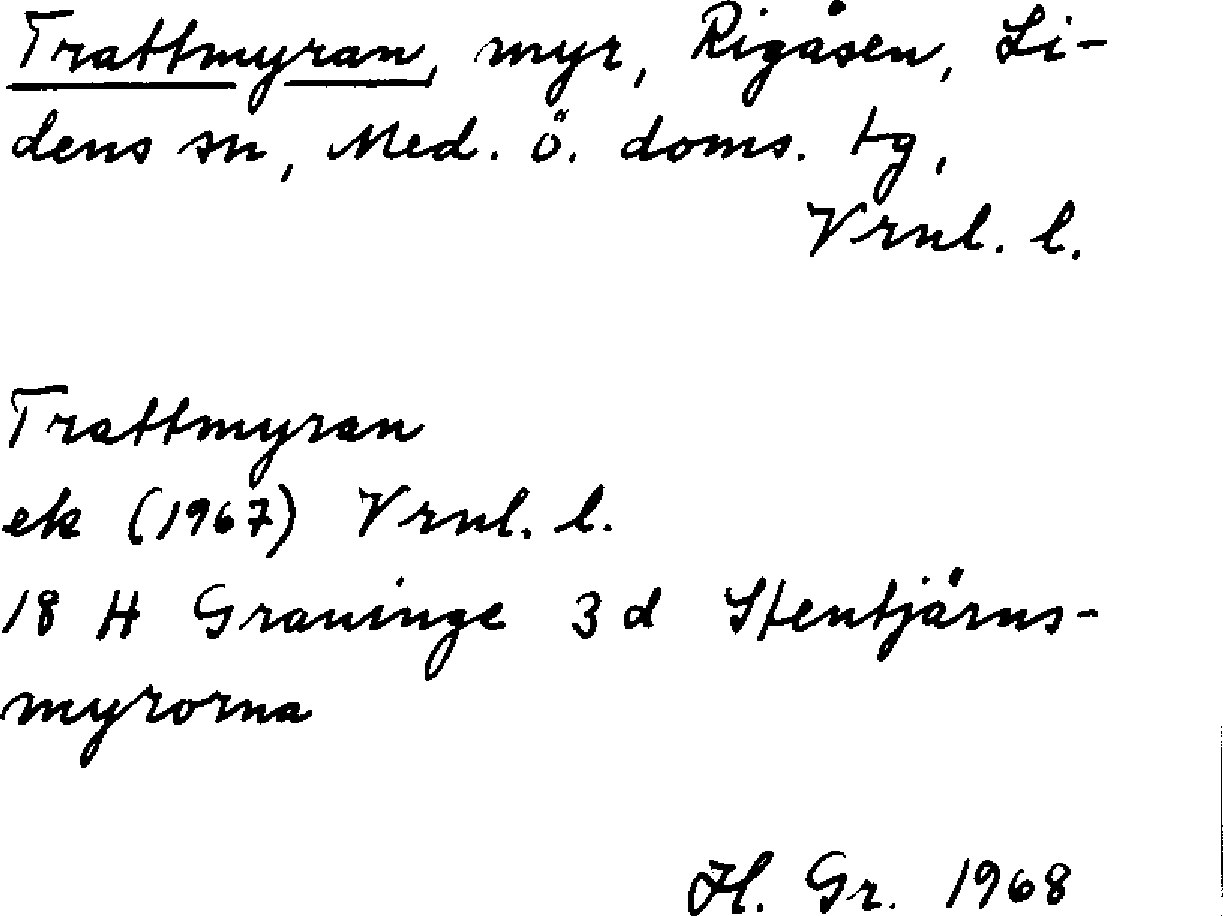 Trattmyran, myr, Rigåsen, Li-
dens sn, Med. ö. doms. tg,
Vrnl. l.
Trattmyran
ek (1967) Vrnl. l.
18 H Graninge 3 d Stentjärns-
myrorna
H. Gr. 1968